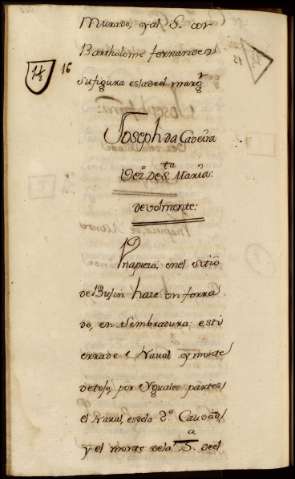 Murado, y al S. con
Bartholome fernandez
su figura es la del margn
14 16
Joseph da Caveira
Vezo. de Sta. Maria
de volmente:
Una pieza, en el sitio
de Busin haze un ferra
do, en Sembradura: esta
errada e Naval y monte
de tojo, por Yguales partes
el Naval, es de la 2a. Calidad
y el monte de la 3a. S. del